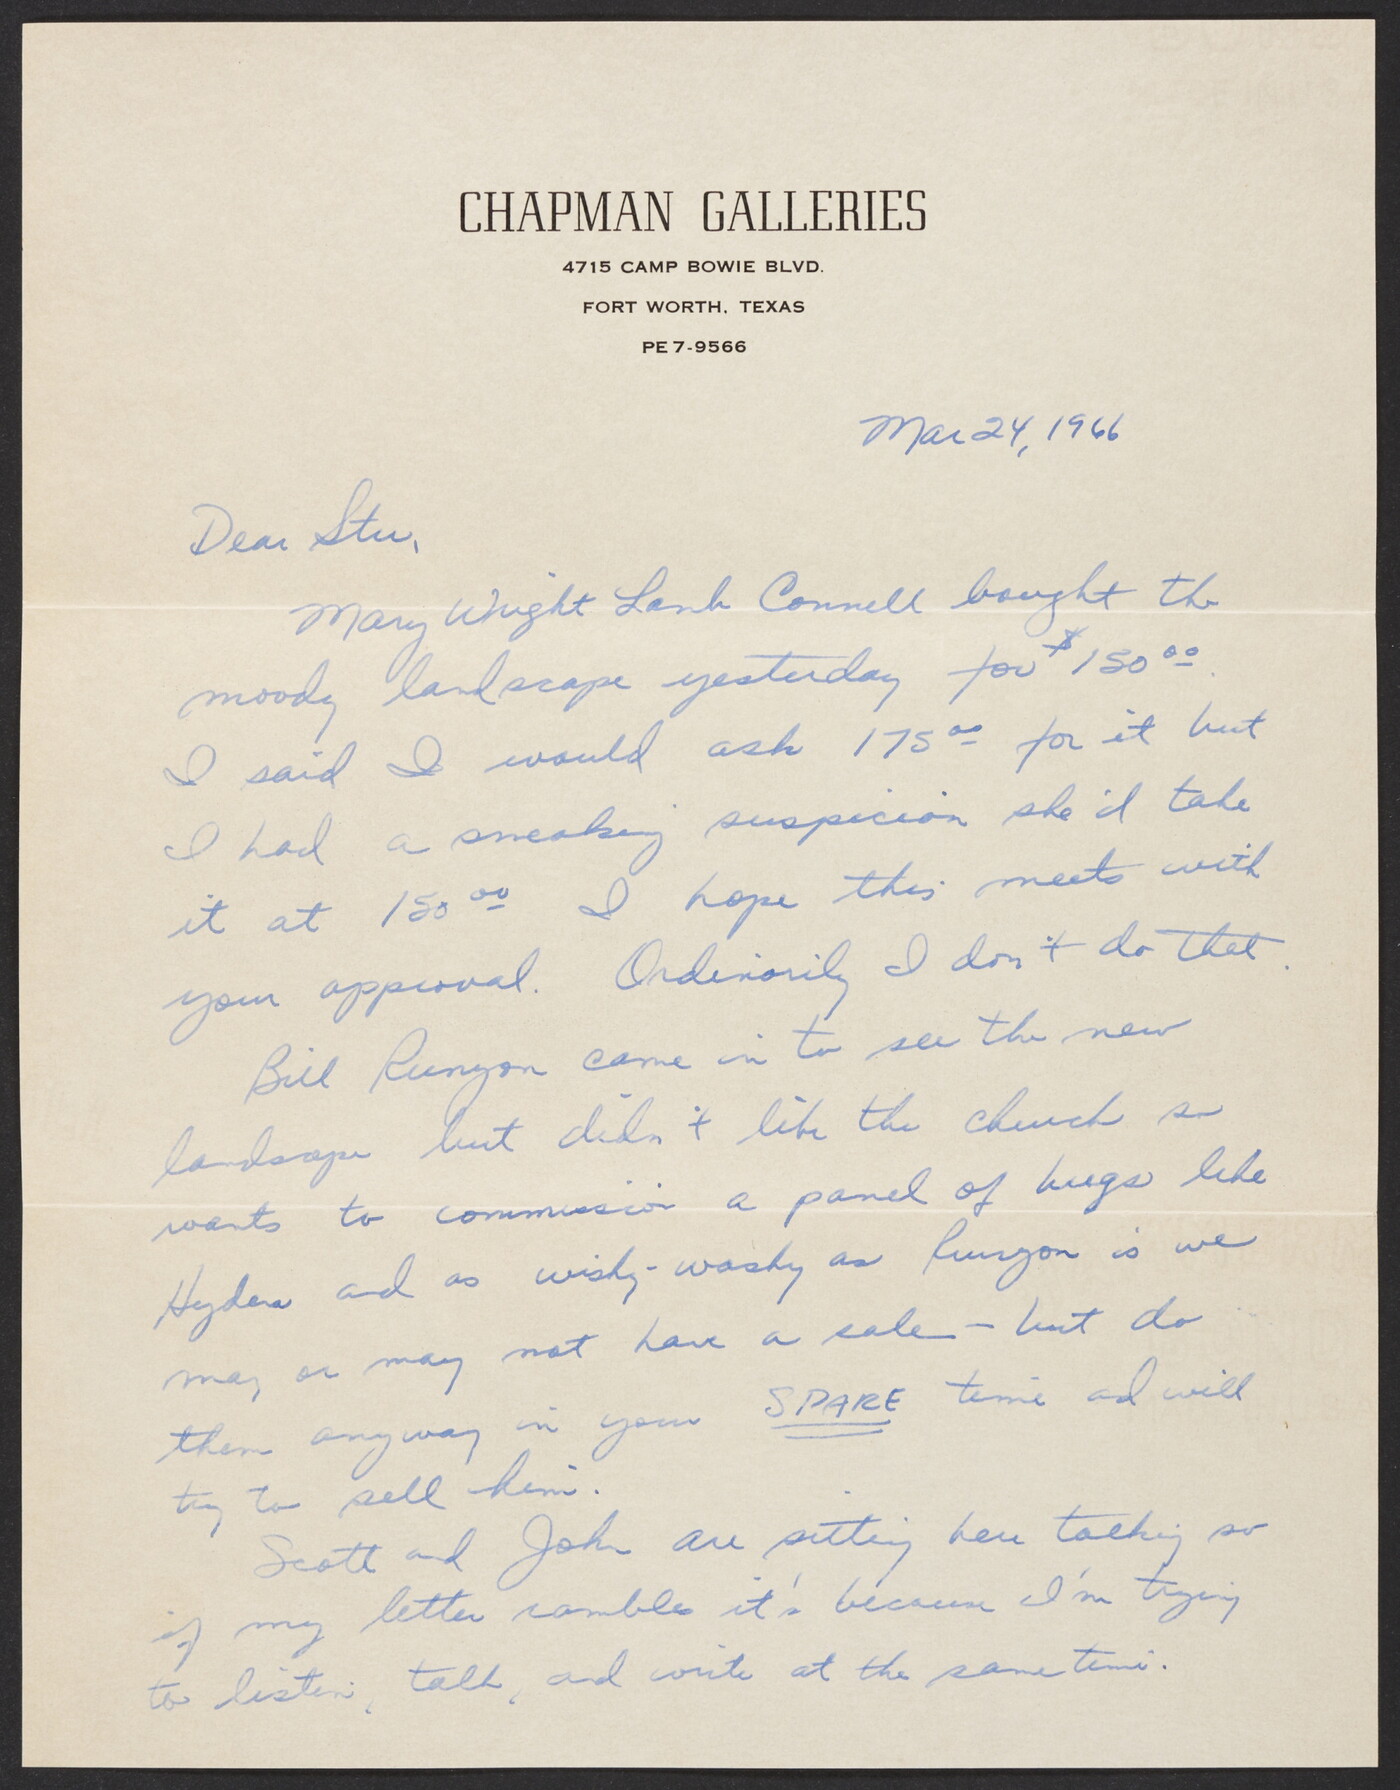 CHAPMAN GALLERIES
4715 CAMP BOWIE BLVD.
FORT WORTH, TEXAS
PE 7-9566
Mar 24, 1966
Dear Stu,
Mary Wright Lamb Connell bought the
moody landscape yesterday for $150 00.
I said I would ask 175 00 for it but
I had a sneaking suspicion she'd take
it at 150 00 I hope this meets with
your approval. Ordinarily I don't do that.
Bill Runyon came in to see the new
landscape but didn't like the church so
wants to commission a panel of bugs like
Hyders and as wishy-washy as Runyon is we
may or may not have a sale - but do
them anyway in your SPARE time ad will
try to sell him.
Scott and John are sitting here talking so
if my letter rambles it's because I'm trying
to listen, talk, and write at the same time.